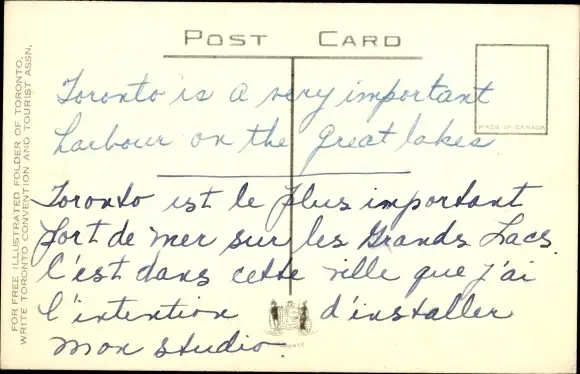 POST CARD
MADE IN CANADA
FOR FREE ILLUSTRATED FOLDER OF TORONTO,
WRITE TORONTO CONVENTION AND TOURIST ASSN.
Toronto is a very important
harbour on the great lakes
Toronto est le plus important
port de mer sur les Grands Lacs
c'est dans cette ville que j'ai
l'intention d'installer
mon studio.
TORONTO